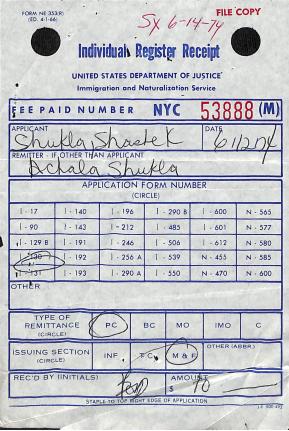 FORM NE 353(R)
(ED. 4-1-66)
SX 6-14-74
FILE COPY
Individual Register Receipt
UNITED STATES DEPARTMENT OF JUSTICE
Immigration and Naturalization Service
FEE PAID NUMBER NYC 53888 (M)
APPLICANT DATE
Shukla, 6/12/74
REMITTER - IF OTHER THAN APPLICANT
Achala Shukla
APPLICATION FORM NUMBER
(CIRCLE)
I - 17 I - 140 I - 196 I - 290 B I - 600 N - 565
I - 90 I - 143 I - 212 I - 485 I - 601 N - 577
I - 129 B I - 191 I - 246 I - 506 I - 612 N - 580
I - 130 I - 192 I - 256 A I - 539 N - 455 N - 585
I - 131 I - 193 I - 290 A I - 550 N - 470 N - 600
OTHER
TYPE OF REMITTANCE (CIRCLE) PC BC MO IMO C
ISSUING SECTION (CIRCLE) INF. T.C. M & F OTHER (ABBR.)
REC'D BY (INITIALS) AMOUNT
$ 10
STAPLE TO TOP RIGHT EDGE OF APPLICATION